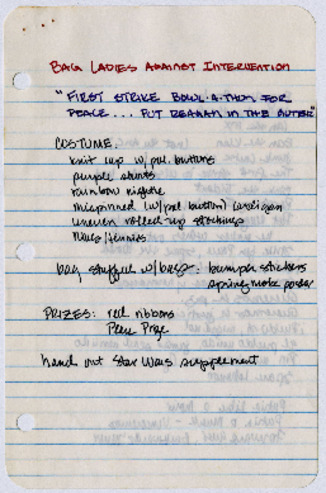 BAG LADIES AGAINST INTERVENTION
"FIRST STRIKE BOWL-A-THON FOR
PEACE... PUT REAGAN IN THE GUTTER"
COSTUME:
knit cap w/pol. buttons
purple shorts
rainbow nightie
mispinned (w/pol button) cardigan
uneven rolled-up stockings
/tennis
bag stuffed w/bags: bumper stickers
spring mobe poster
PRIZES: red ribbons
Peace Prize
hand out Star Wars supplement